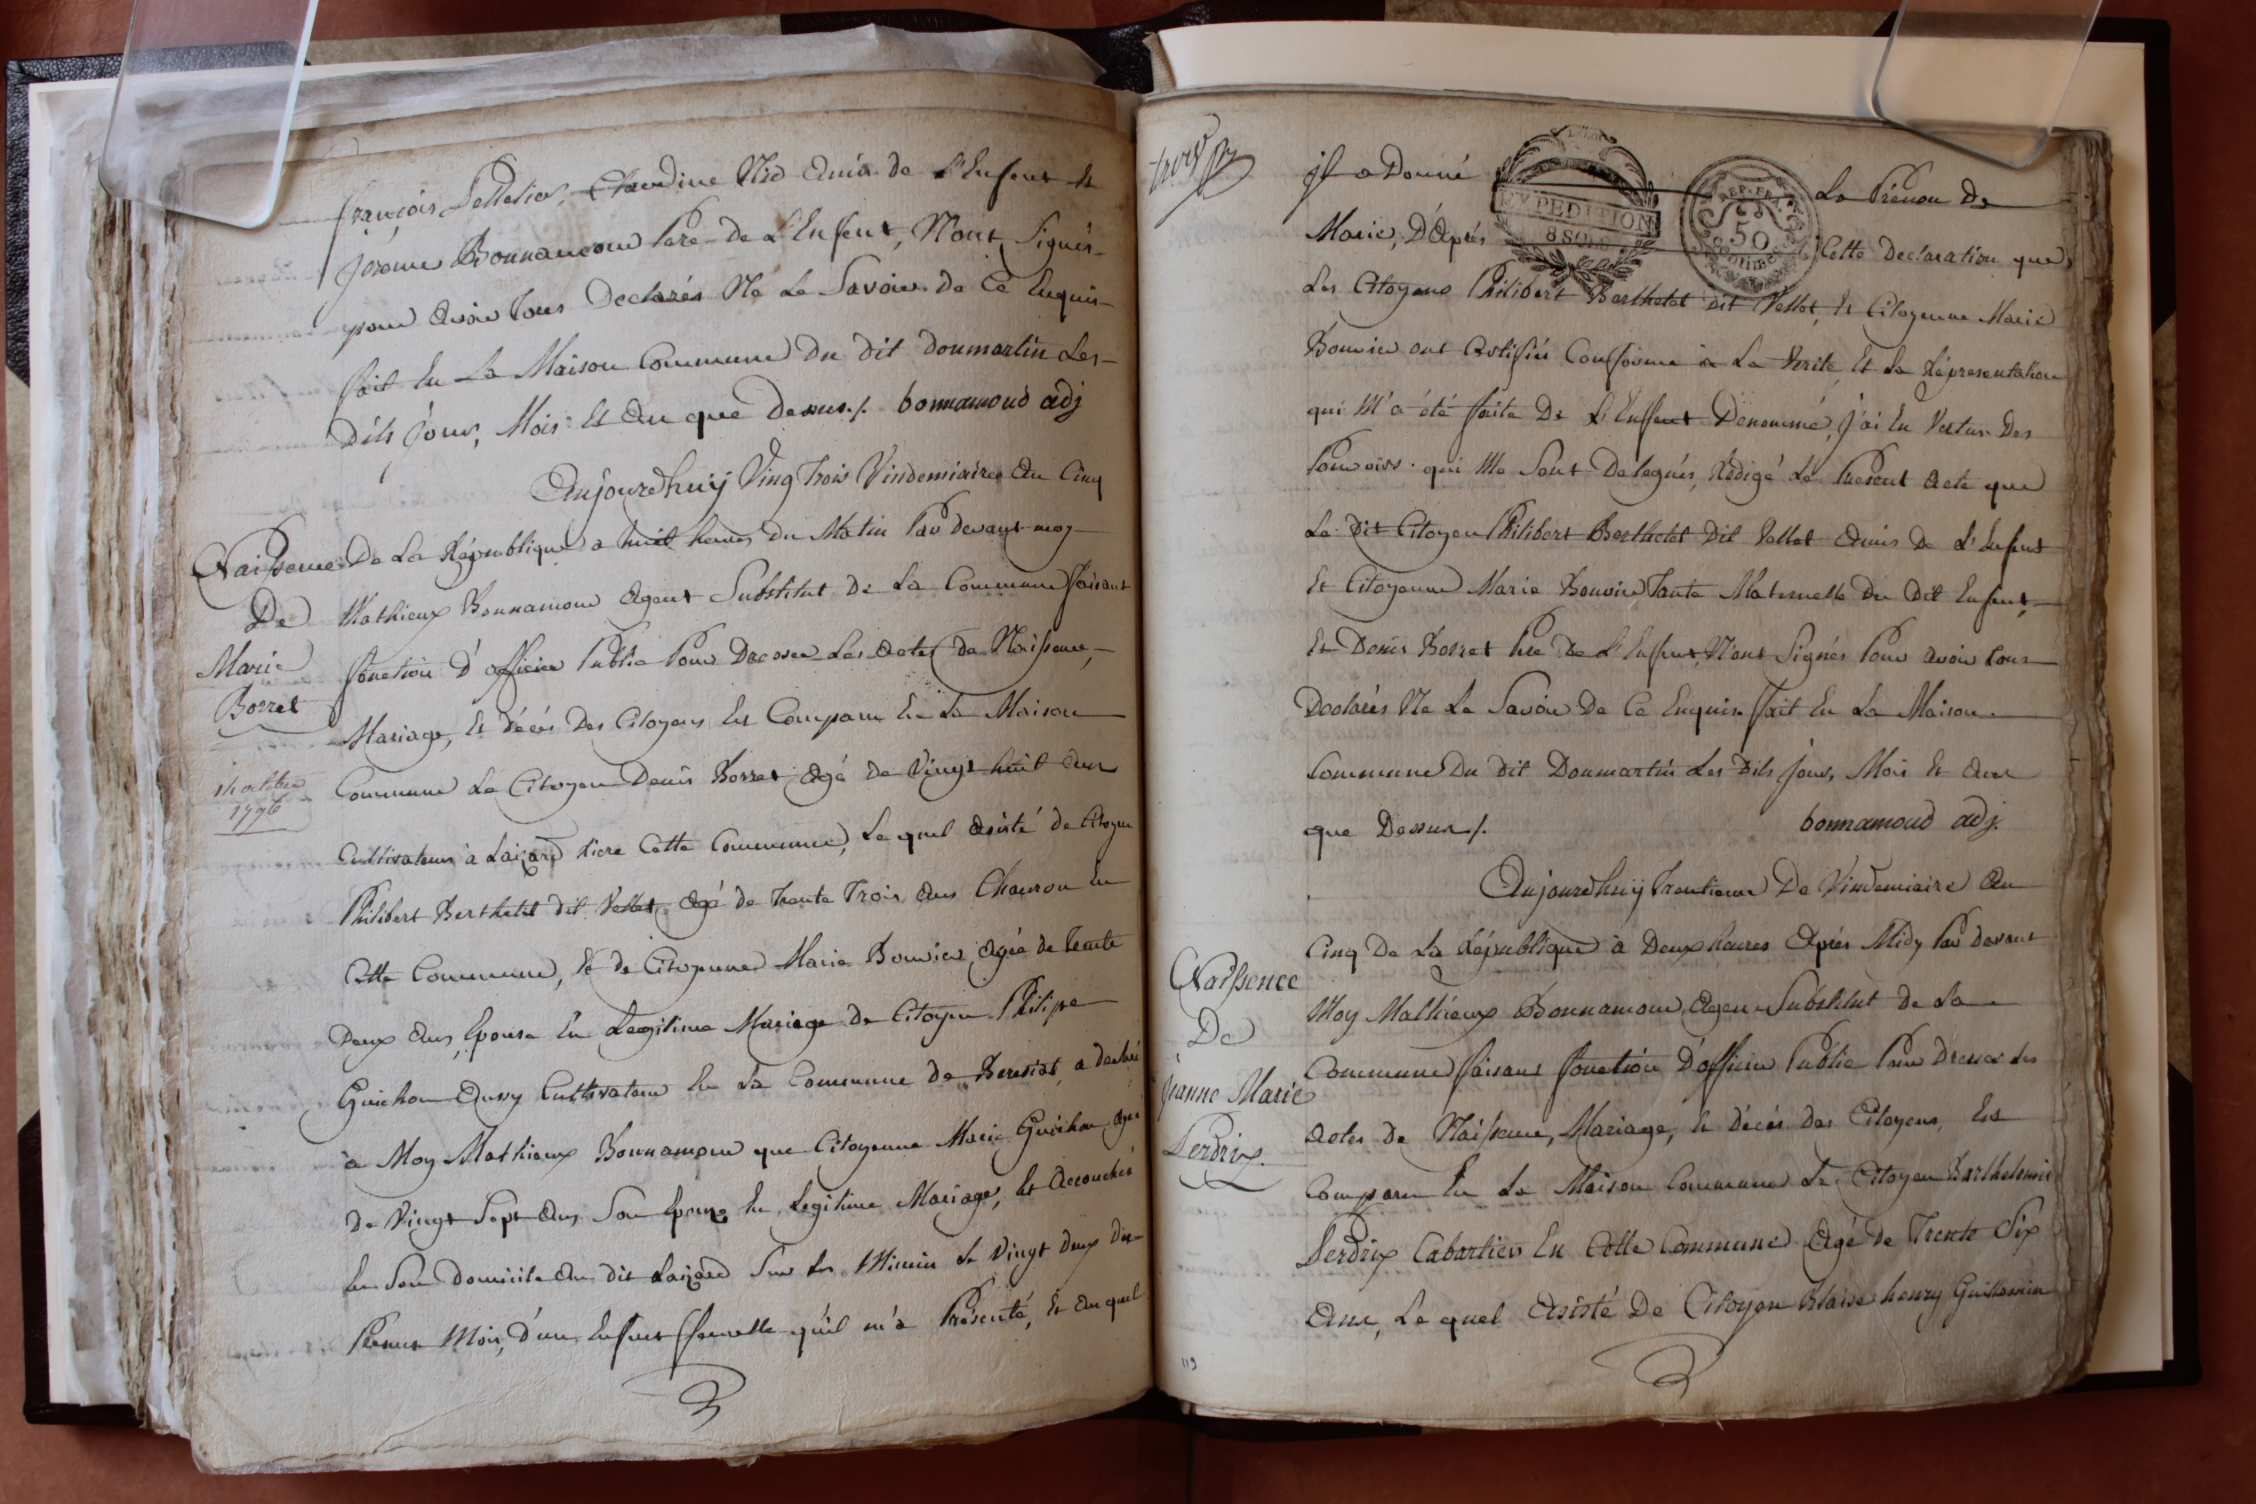 françois Pelletier, Claudine Nid Amis de L'Enfent Et
jérome Bonnamour Pere de L'Enfent, N'ont Signés
pour Avoir tous Declarés Ne Le Savoir de Ce Enquis
fait En La Maison Commune Du dit donmartin Les
Dits jour, Mois Et An que Dessus ./. bonnamoud adj
Aujourdhuij Ving Trois Vindemiaire An Cinq
Naissence De La République a huit heures du Matin Par devant moy
De
Marie
Borret
14 octobre
1796
Mathieux Bonnamour Agent Substitut de La Commune faisant
fonction d'officier Public Pour Dresser Les Actes De Naissence,
Mariage, Et décés Des Citoyens Est Comparu En La Maison
Commune Le Citoyen Denis Borret Agé de Vingt huit Ans
Cultivateur à Laizard Riere Cette Commune, Le quel Asisté de Citoyen
Philibert Berthelet dit Vellet, Agé de Trente Trois Ans Charron En
Cette Commune, Et de Citoyenne Marie Bouvier Agée de Trente
Deux Ans, Epouse En Legitime Mariage de Citoyen Philipe
Guichon Aussy Cultivateur En La Commune de Bereziat, a declaré
à Moy Mathieux Bonnamour que Citoyenne Marie Guichon Agée
De Vingt Sept Ans Son Epouse En Legitime Mariage, Est Accouchée
En Son Domicile Au dit Laizard Sur Les Minuit Le Vingt Deux Du
Présent Mois, D'un Enfent femelle qu'il m'à Présenté, Et Au quel
trois
jl a Donné Le Prénom De
EXPEDITION
8 SOLS
REP. FRA.
50
Marie, D'Après Cette Declaration que
Les Citoyens Philibert Berthelet dit Vellet, Et Citoyenne Marie
Bouvier ont Certifiée Conforme à La Verité, Et La Répresentation
qui M'a été faite De L'Enfent Denommé, j'ai En Vertue Des
Pouvoirs qui Me Sont Delegués, Rédigé Le Présent Acte que
Le Dit Citoyen Philibert Berthelet Dit Vellet Amis De L'Enfent
Et Citoyenne Marie Bouvier Tante Maternelle Du Dit Enfent,
Et Denis Borret Pere De L'Enfent, N'ont Signés Pour Avoir tous
Declarés Ne Le Savoir De Ce Enquis. fait En La Maison
Commune Du Dit Donmartin Les Dits jour, Mois Et Ans
que Dessus ./. bonnamoud adj.
Aujourdhuij Trentieme De Vindemiaire An
Cinq De La République à Deux heures Aprés Midy Par devant
Naissence
De
jeanne Marie
Perdrix.
Moy Mathieux Bonnamour Agen Substitut de La
Commune faisant fonction D'officier Public Pour Dresser Les
Actes De Naissence, Mariage, Et Décés Des Citoyens, Est
Comparu En La Maison Commune Le Citoyen Barthelemie
Perdrix Cabartier En Cette Commune Agé de Trente Six
Ans, Le quel Asisté De Citoyen Blaise henry Guillemin
119